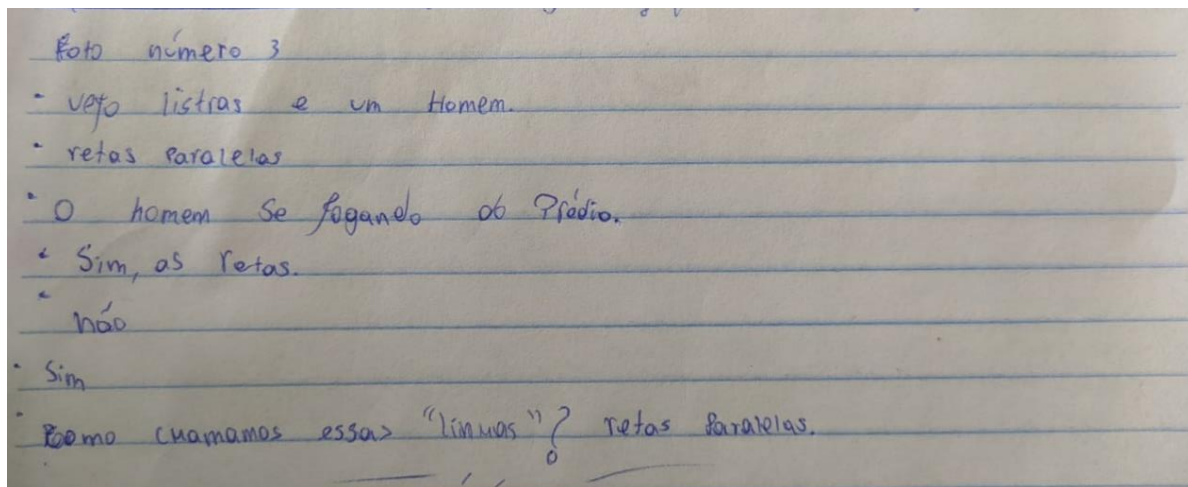 Foto número 3
- vejo listras e um Homem.
- retas Paralelas
• O homem se jogando do Prédio.
• Sim, as retas.
• não
• Sim
• Como chamamos essas "linhas"? retas Paralelas.